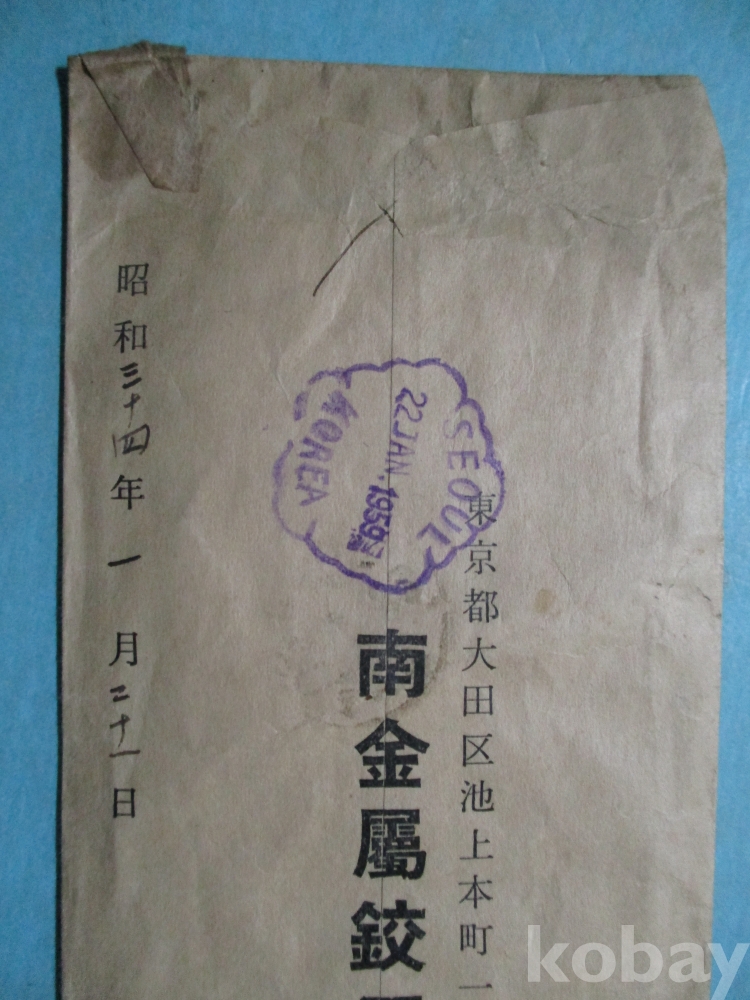 東京都大田区池上本町一
南金屬鉸
昭和三十四年一月二十一日
SEOUL
22 JAN. 1959
KOREA
kobay